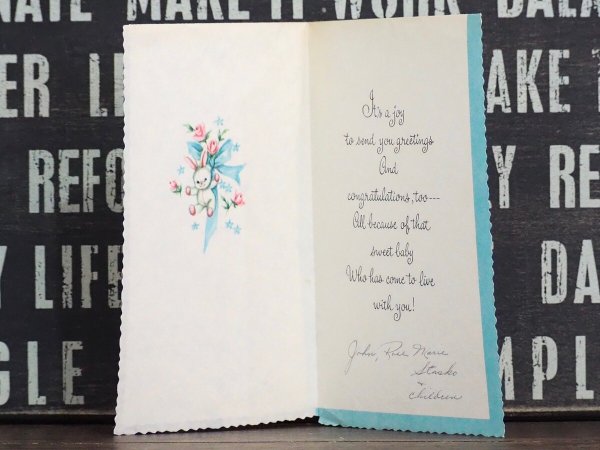 NATE MAKE IT WORK BALA
ER LI
AKE
REFO
Y RE
Y LIFE
DA
GLE
MPL
It's a joy
to send you greetings
And
congratulations, too---
All because of that
sweet baby
Who has come to live
with you!
John, Rose Marie
Stasko
&
children